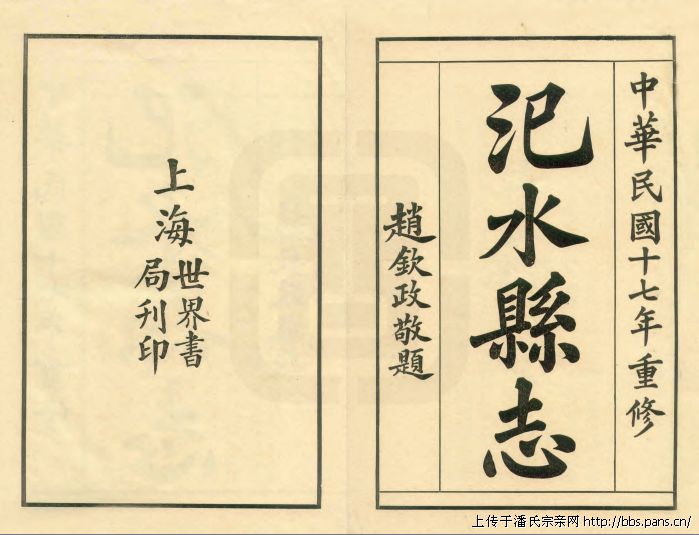 中華民國十七年重修
汜水縣志
趙欽政敬題
上海世界書
局刊印
上传于潘氏宗亲网 http://bbs.pans.cn/